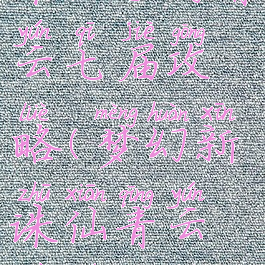 yún qī jiè gōng
云七届攻
lüè mèng huàn xīn
略(梦幻新
zhū xiān qīng yún
诛仙青云